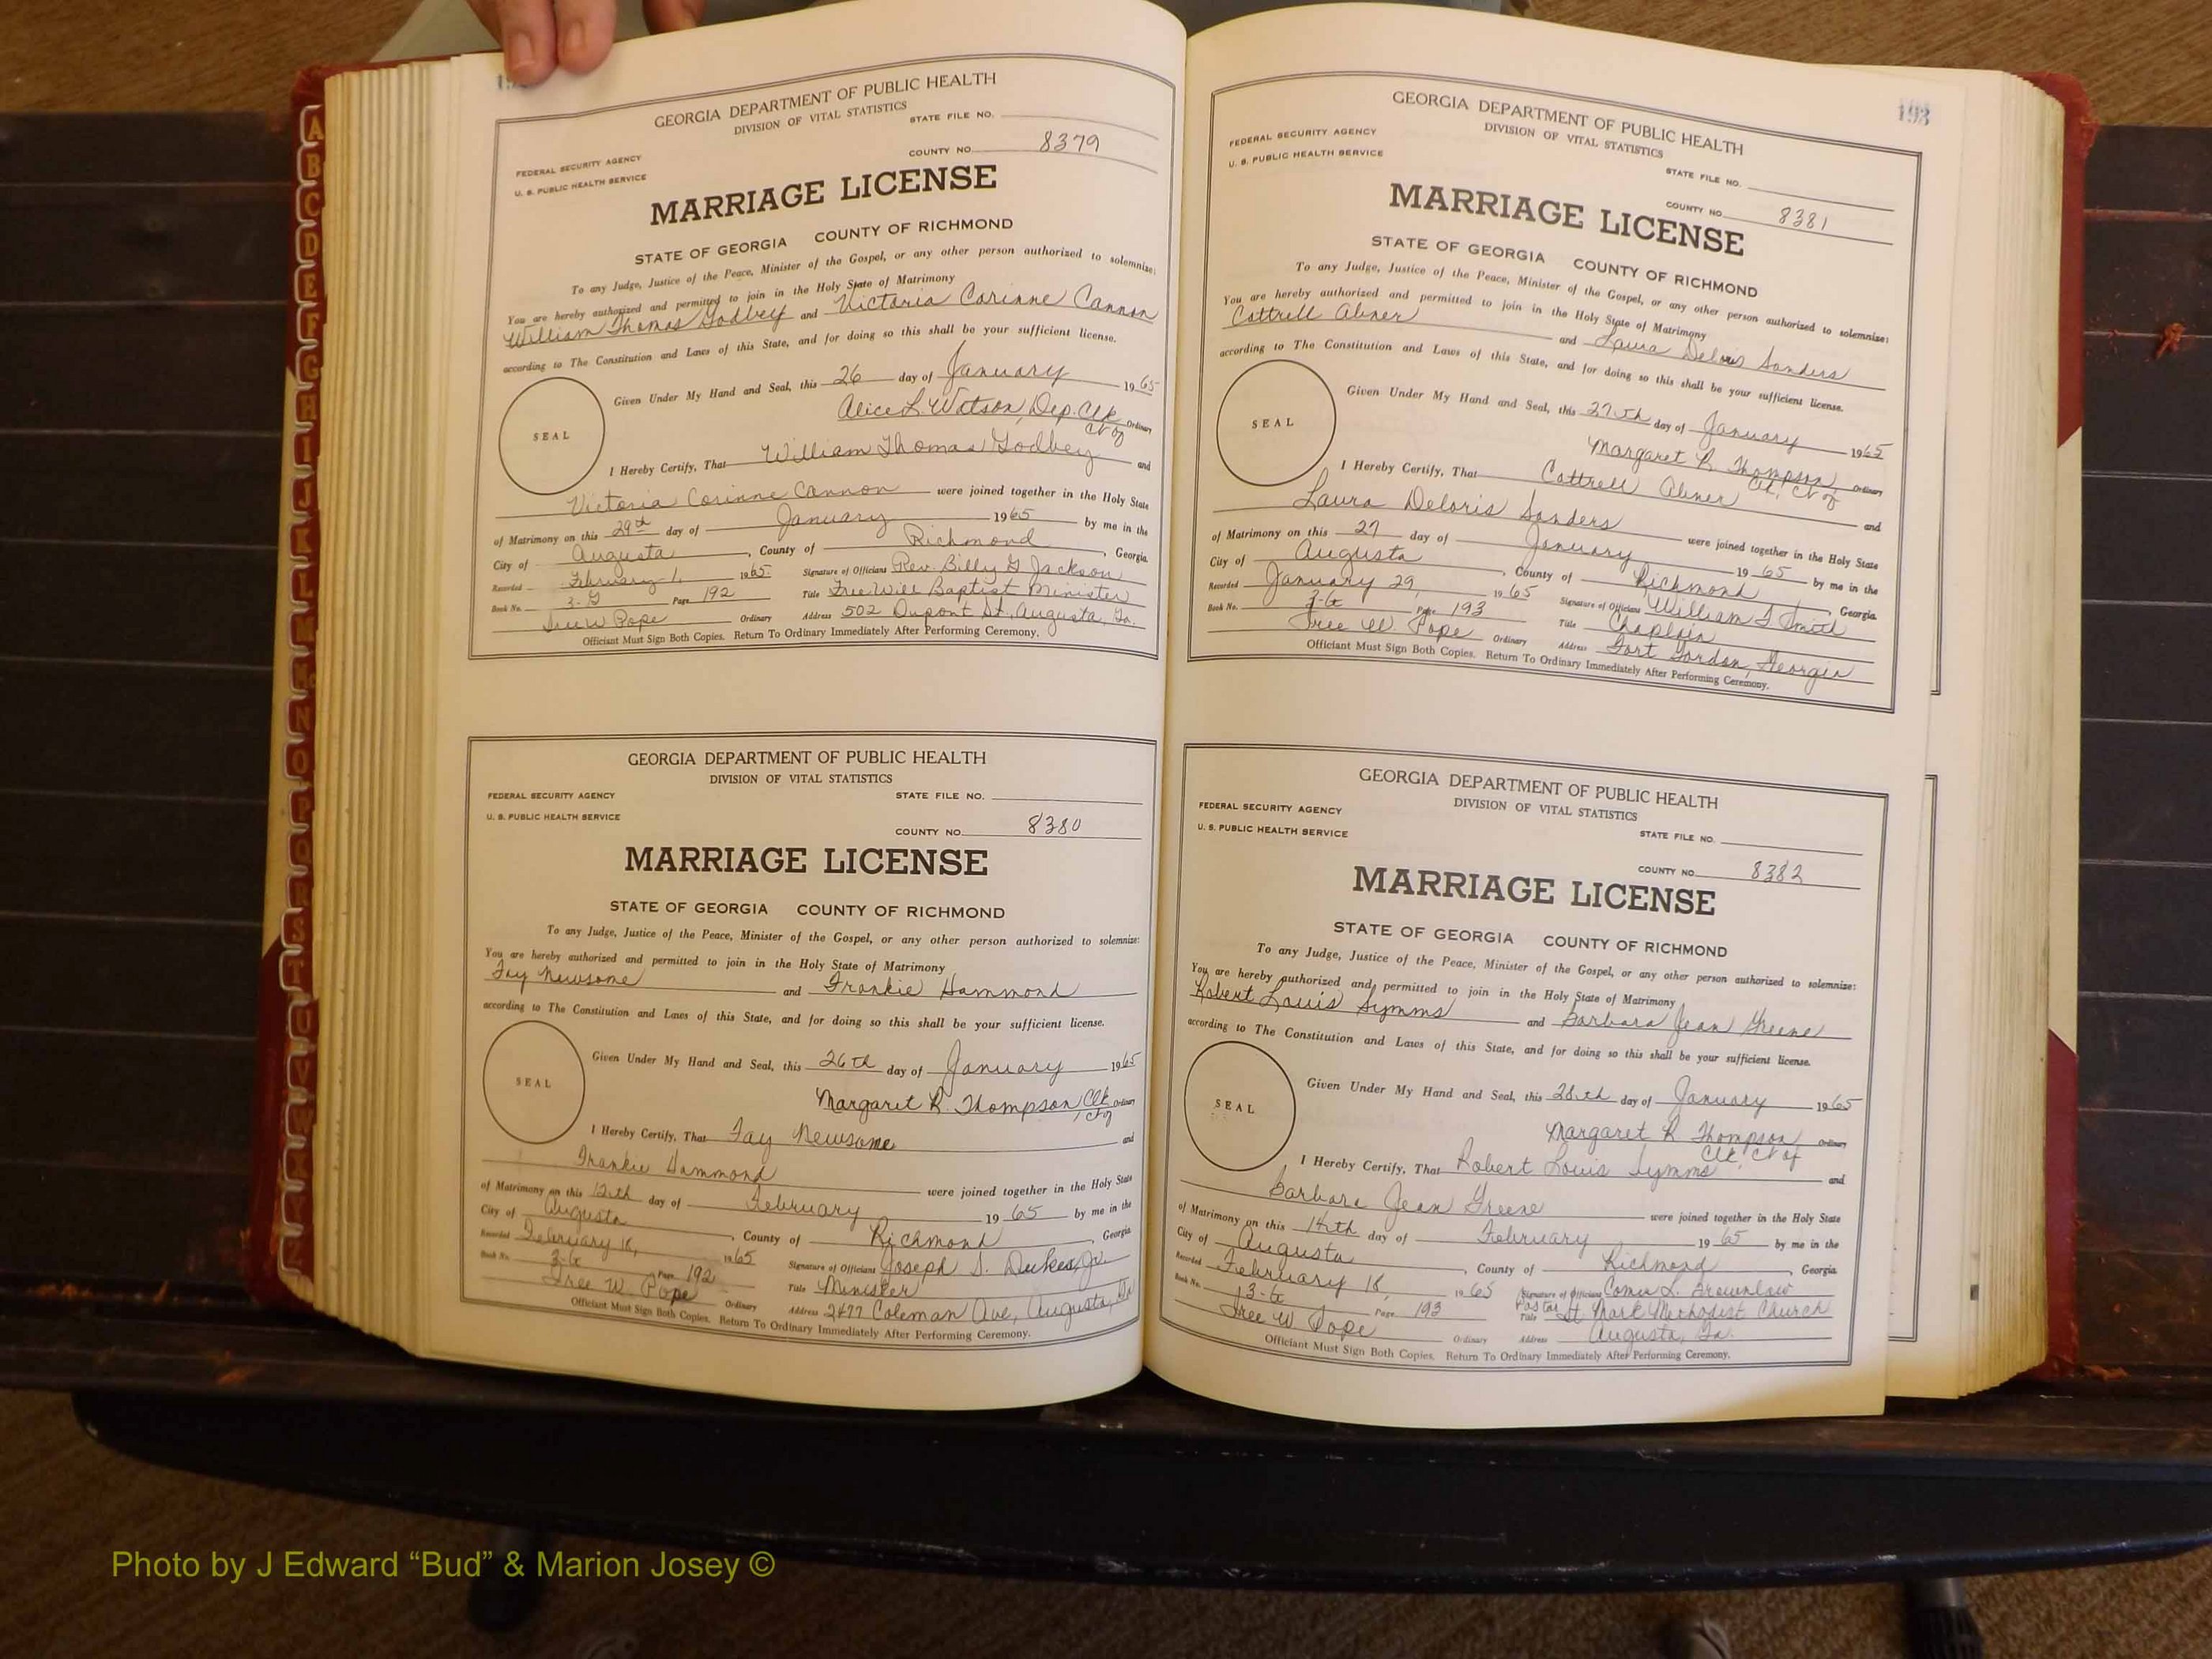 GEORGIA DEPARTMENT OF PUBLIC HEALTH
DIVISION OF VITAL STATISTICS
STATE FILE NO.
FEDERAL SECURITY AGENCY
U. S. PUBLIC HEALTH SERVICE
COUNTY NO. 8379
MARRIAGE LICENSE
STATE OF GEORGIA COUNTY OF RICHMOND
To any Judge, Justice of the Peace, Minister of the Gospel, or any other person authorized to solemnize:
You are hereby authorized and permitted to join in the Holy State of Matrimony
William Thomas Godbey and Victoria Corinne Cannon
according to The Constitution and Laws of this State, and for doing so this shall be your sufficient license.
SEAL
Given Under My Hand and Seal, this 26 day of January 1965
Alice L. Watson, Dep. Clk Ordinary
Ct of
I Hereby Certify, That William Thomas Godbey and
Victoria Corinne Cannon were joined together in the Holy State
of Matrimony on this 29th day of January 1965 by me in the
City of Augusta, County of Richmond, Georgia.
Recorded February 1, 1965 Signature of Officiant Rev. Billy G Jackson
Book No. 3-G Page 192 Title Free Will Baptist Minister
Tree W Pope Ordinary Address 502 Dupont St. Augusta, Ga.
Officiant Must Sign Both Copies. Return To Ordinary Immediately After Performing Ceremony.
GEORGIA DEPARTMENT OF PUBLIC HEALTH
DIVISION OF VITAL STATISTICS
FEDERAL SECURITY AGENCY
STATE FILE NO.
U. S. PUBLIC HEALTH SERVICE
COUNTY NO. 8380
MARRIAGE LICENSE
STATE OF GEORGIA COUNTY OF RICHMOND
To any Judge, Justice of the Peace, Minister of the Gospel, or any other person authorized to solemnize:
You are hereby authorized and permitted to join in the Holy State of Matrimony
Jay Newsome and Frankie Hammond
according to The Constitution and Laws of this State, and for doing so this shall be your sufficient license.
SEAL
Given Under My Hand and Seal, this 26th day of January 1965
Margaret R. Thompson Clk Ordinary
Ct of
I Hereby Certify, That Jay Newsome and
Frankie Hammond were joined together in the Holy State
of Matrimony on this 12th day of February 1965 by me in the
City of Augusta, County of Richmond, Georgia.
Recorded February 18, 1965 Signature of Officiant Joseph S. Dukes, Jr.
Book No. 3-G Page 192 Title Minister
Tree W. Pope Ordinary Address 2477 Coleman Ave, Augusta, Ga
Officiant Must Sign Both Copies. Return To Ordinary Immediately After Performing Ceremony.
193
GEORGIA DEPARTMENT OF PUBLIC HEALTH
DIVISION OF VITAL STATISTICS
FEDERAL SECURITY AGENCY
U. S. PUBLIC HEALTH SERVICE
STATE FILE NO.
COUNTY NO. 8381
MARRIAGE LICENSE
STATE OF GEORGIA COUNTY OF RICHMOND
To any Judge, Justice of the Peace, Minister of the Gospel, or any other person authorized to solemnize:
You are hereby authorized and permitted to join in the Holy State of Matrimony
Cottrell Abner and Laura Deloris Sanders
according to The Constitution and Laws of this State, and for doing so this shall be your sufficient license.
SEAL
Given Under My Hand and Seal, this 27th day of January 1965
Margaret R. Thompson, Ordinary
Clk, Ct of
I Hereby Certify, That Cottrell Abner and
Laura Deloris Sanders were joined together in the Holy State
of Matrimony on this 27 day of January 1965 by me in the
City of Augusta, County of Richmond, Georgia.
Recorded January 29, 1965 Signature of Officiant William S Smith
Book No. 3-G Page 193 Title Chaplain
Tree W. Pope Ordinary Address Fort Gordon, Georgia
Officiant Must Sign Both Copies. Return To Ordinary Immediately After Performing Ceremony.
GEORGIA DEPARTMENT OF PUBLIC HEALTH
DIVISION OF VITAL STATISTICS
FEDERAL SECURITY AGENCY
U. S. PUBLIC HEALTH SERVICE
STATE FILE NO.
COUNTY NO. 8382
MARRIAGE LICENSE
STATE OF GEORGIA COUNTY OF RICHMOND
To any Judge, Justice of the Peace, Minister of the Gospel, or any other person authorized to solemnize:
You are hereby authorized and permitted to join in the Holy State of Matrimony
Robert Louis Symms and Barbara Jean Greene
according to The Constitution and Laws of this State, and for doing so this shall be your sufficient license.
SEAL
Given Under My Hand and Seal, this 28th day of January 1965
Margaret R Thompson Ordinary
Clk, Ct of
I Hereby Certify, That Robert Louis Symms and
Barbara Jean Greene were joined together in the Holy State
of Matrimony on this 14th day of February 1965 by me in the
City of Augusta, County of Richmond, Georgia
Recorded February 18, 1965 Signature of Officiant L. Brownlow
Book No. 3-G Page 193 Title Pastor St Mark Methodist Church
Tree W Pope Ordinary Address Augusta, Ga.
Officiant Must Sign Both Copies. Return To Ordinary Immediately After Performing Ceremony.
A
B
C
D
E
F
G
H
I
J
K
L
M
Mc
N
O
P
Q
R
S
T
U
V
W
Photo by J Edward “Bud” & Marion Josey ©